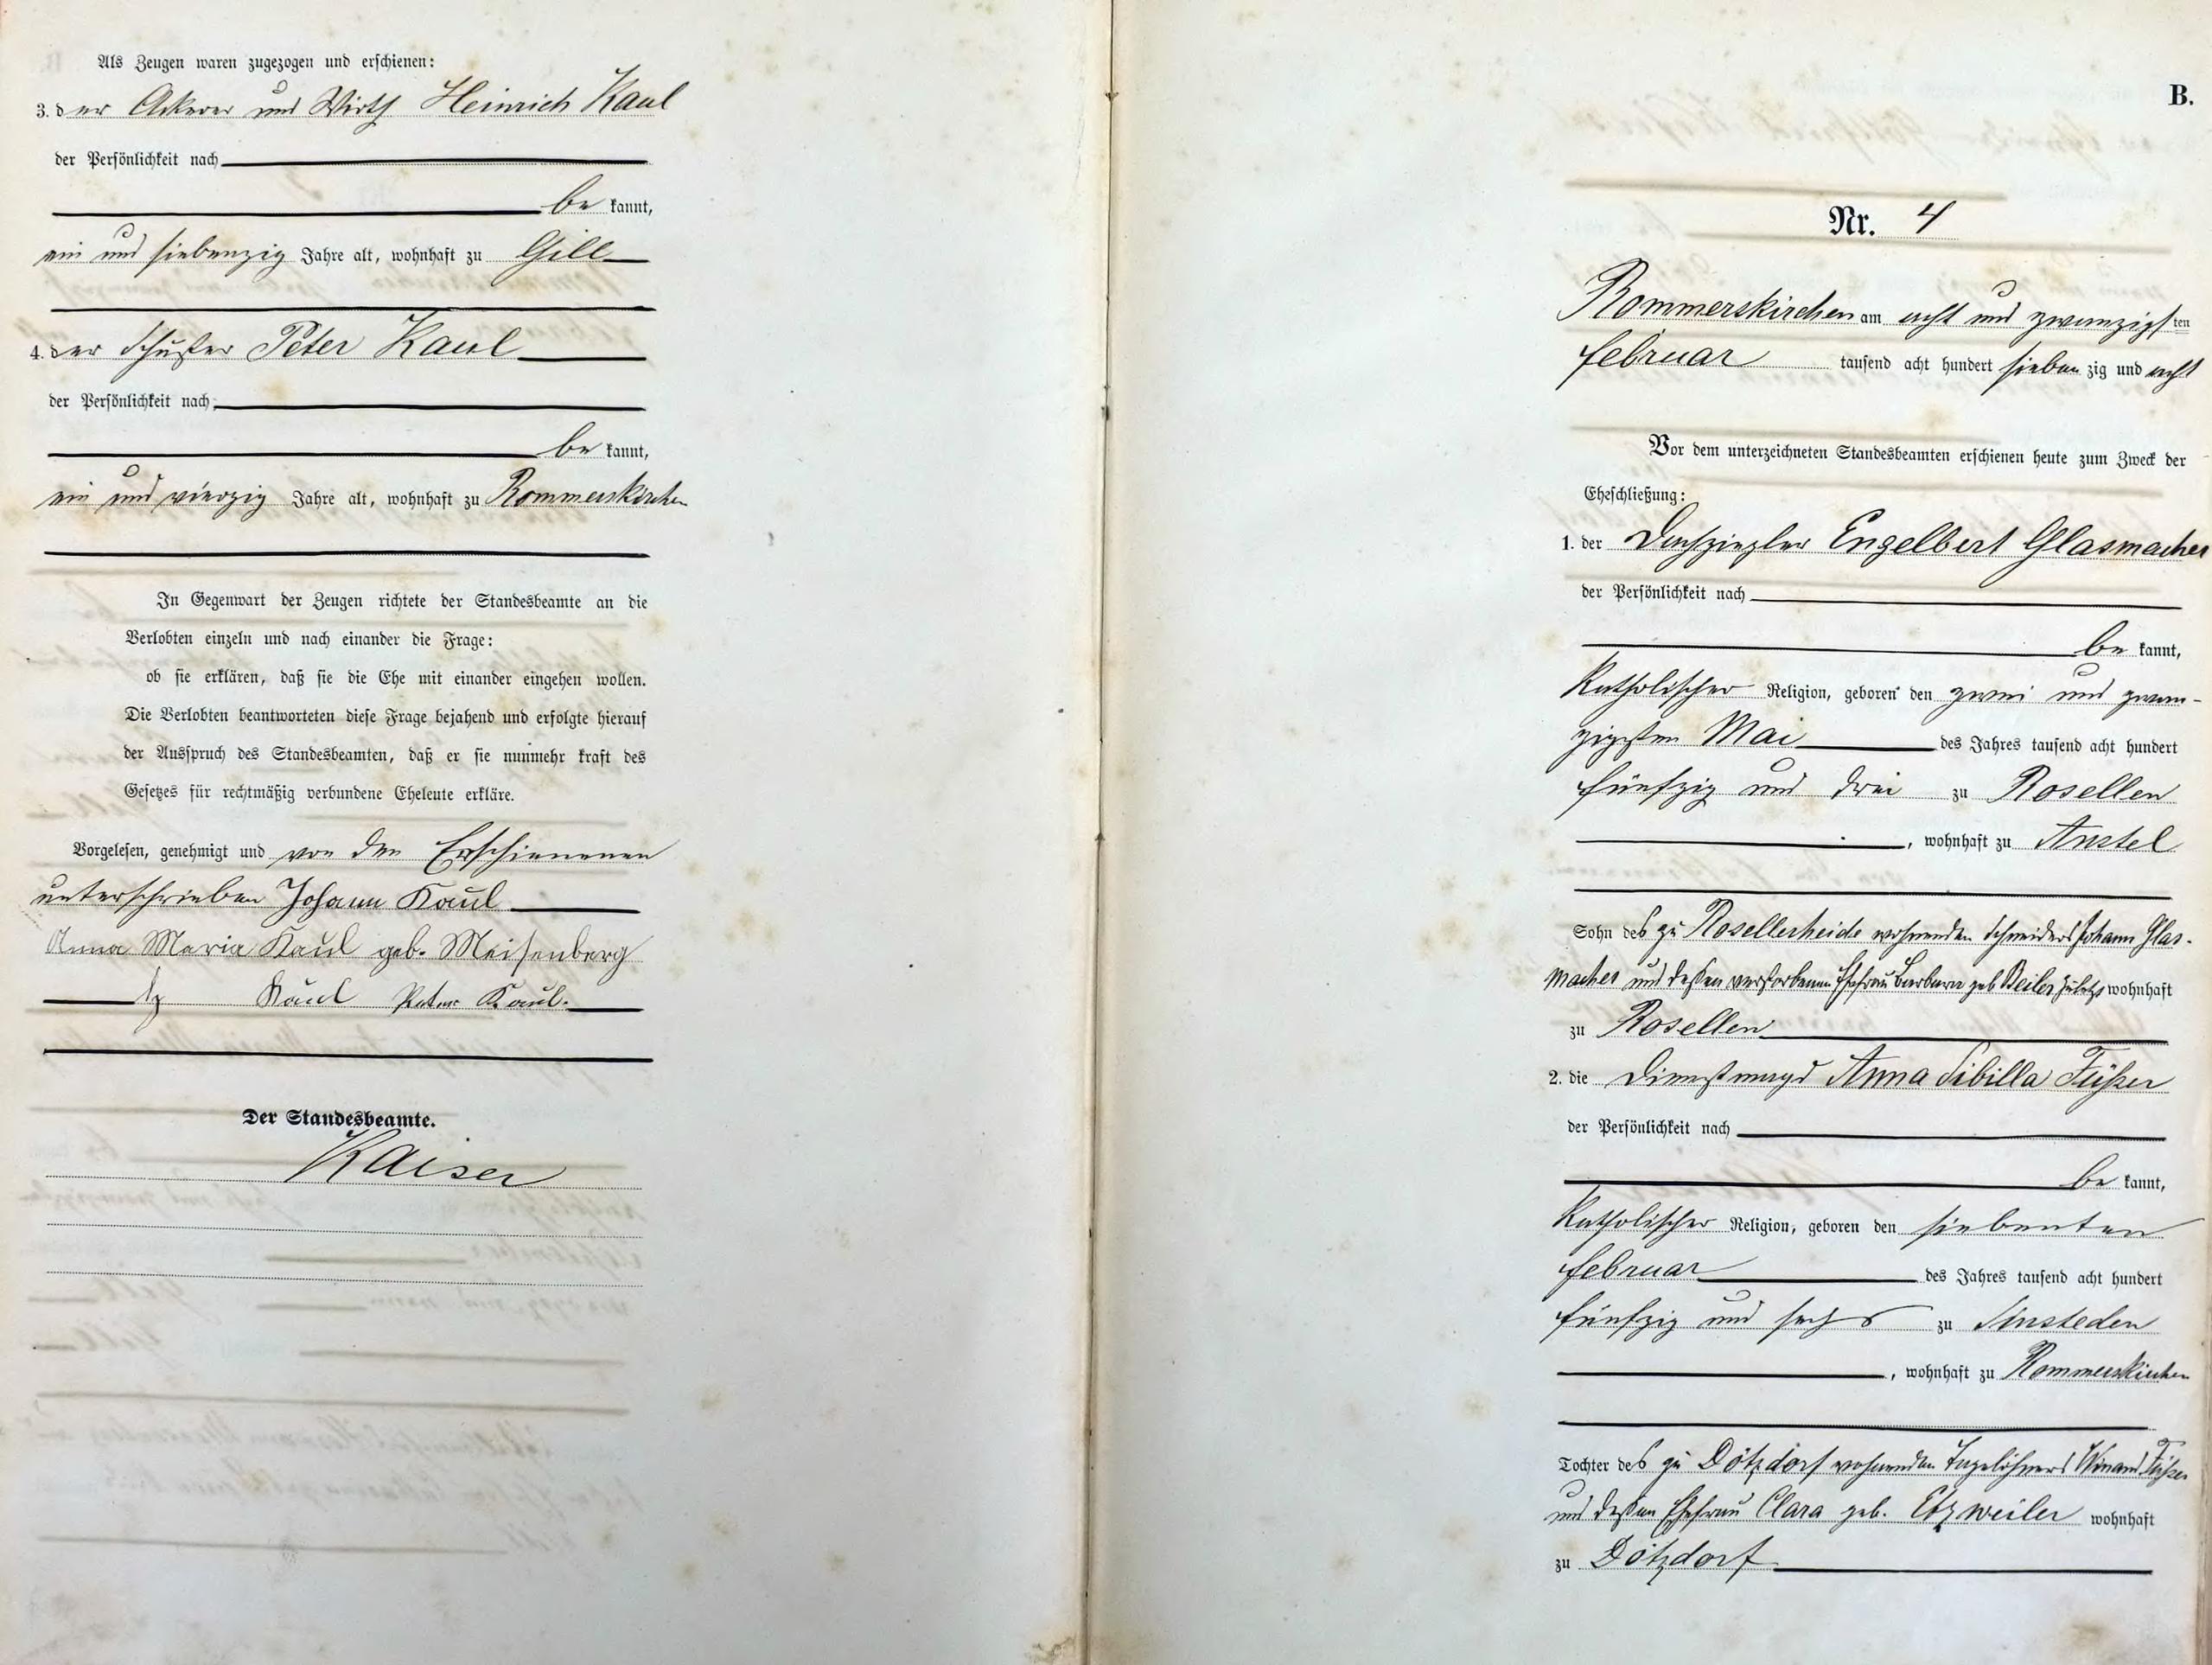 Als Zeugen waren zugezogen und erschienen:
3. der Ackerer und Wirth Heinrich Kaul
der Persönlichkeit nach
be kannt,
ein und siebenzig Jahre alt, wohnhaft zu Gill
4. der Schuster Peter Kaul
der Persönlichkeit nach
be kannt,
ein und vierzig Jahre alt, wohnhaft zu Rommerskirchen
In Gegenwart der Zeugen richtete der Standesbeamte an die
Verlobten einzeln und nach einander die Frage:
ob sie erklären, daß sie die Ehe mit einander eingehen wollen.
Die Verlobten beantworteten diese Frage bejahend und erfolgte hierauf
der Ausspruch des Standesbeamten, daß er sie nunmehr kraft des
Gesetzes für rechtmäßig verbundene Eheleute erkläre.
Vorgelesen, genehmigt und von den Erschienenen
unterschrieben Johann Kaul
Anna Maria Kaul geb. Meisenberg
Kaul Peter Kaul.
Der Standesbeamte.
Kaiser
B.
Nr. 4
Rommerskirchen am acht und zwanzigsten
Februar tausend acht hundert siebenzig und acht
Vor dem unterzeichneten Standesbeamten erschienen heute zum Zweck der
Eheschließung:
1. der Dachziegler Engelbert Glasmacher
der Persönlichkeit nach
be kannt,
Katholischer Religion, geboren den zwei und zwan-
zigsten Mai des Jahres tausend acht hundert
fünfzig und drei zu Rosellen
, wohnhaft zu Anstel
Sohn des zu Rosellerheide wohnenden Schneiders Johann Glas-
macher und dessen verstorbenen Ehefrau Barbara geb Beiler zuletzt wohnhaft
zu Rosellen
2. die Dienstmagd Anna Sibilla Füßer
der Persönlichkeit nach
be kannt,
Katholischer Religion, geboren den siebenten
Februar des Jahres tausend acht hundert
fünfzig und sechs zu Sinsteden
, wohnhaft zu Rommerskirchen
Tochter des zu Dötzdorf wohnenden Tagelöhners Winand Füßer
und dessen Ehefrau Clara geb. Etzweiler wohnhaft
zu Dötzdorf